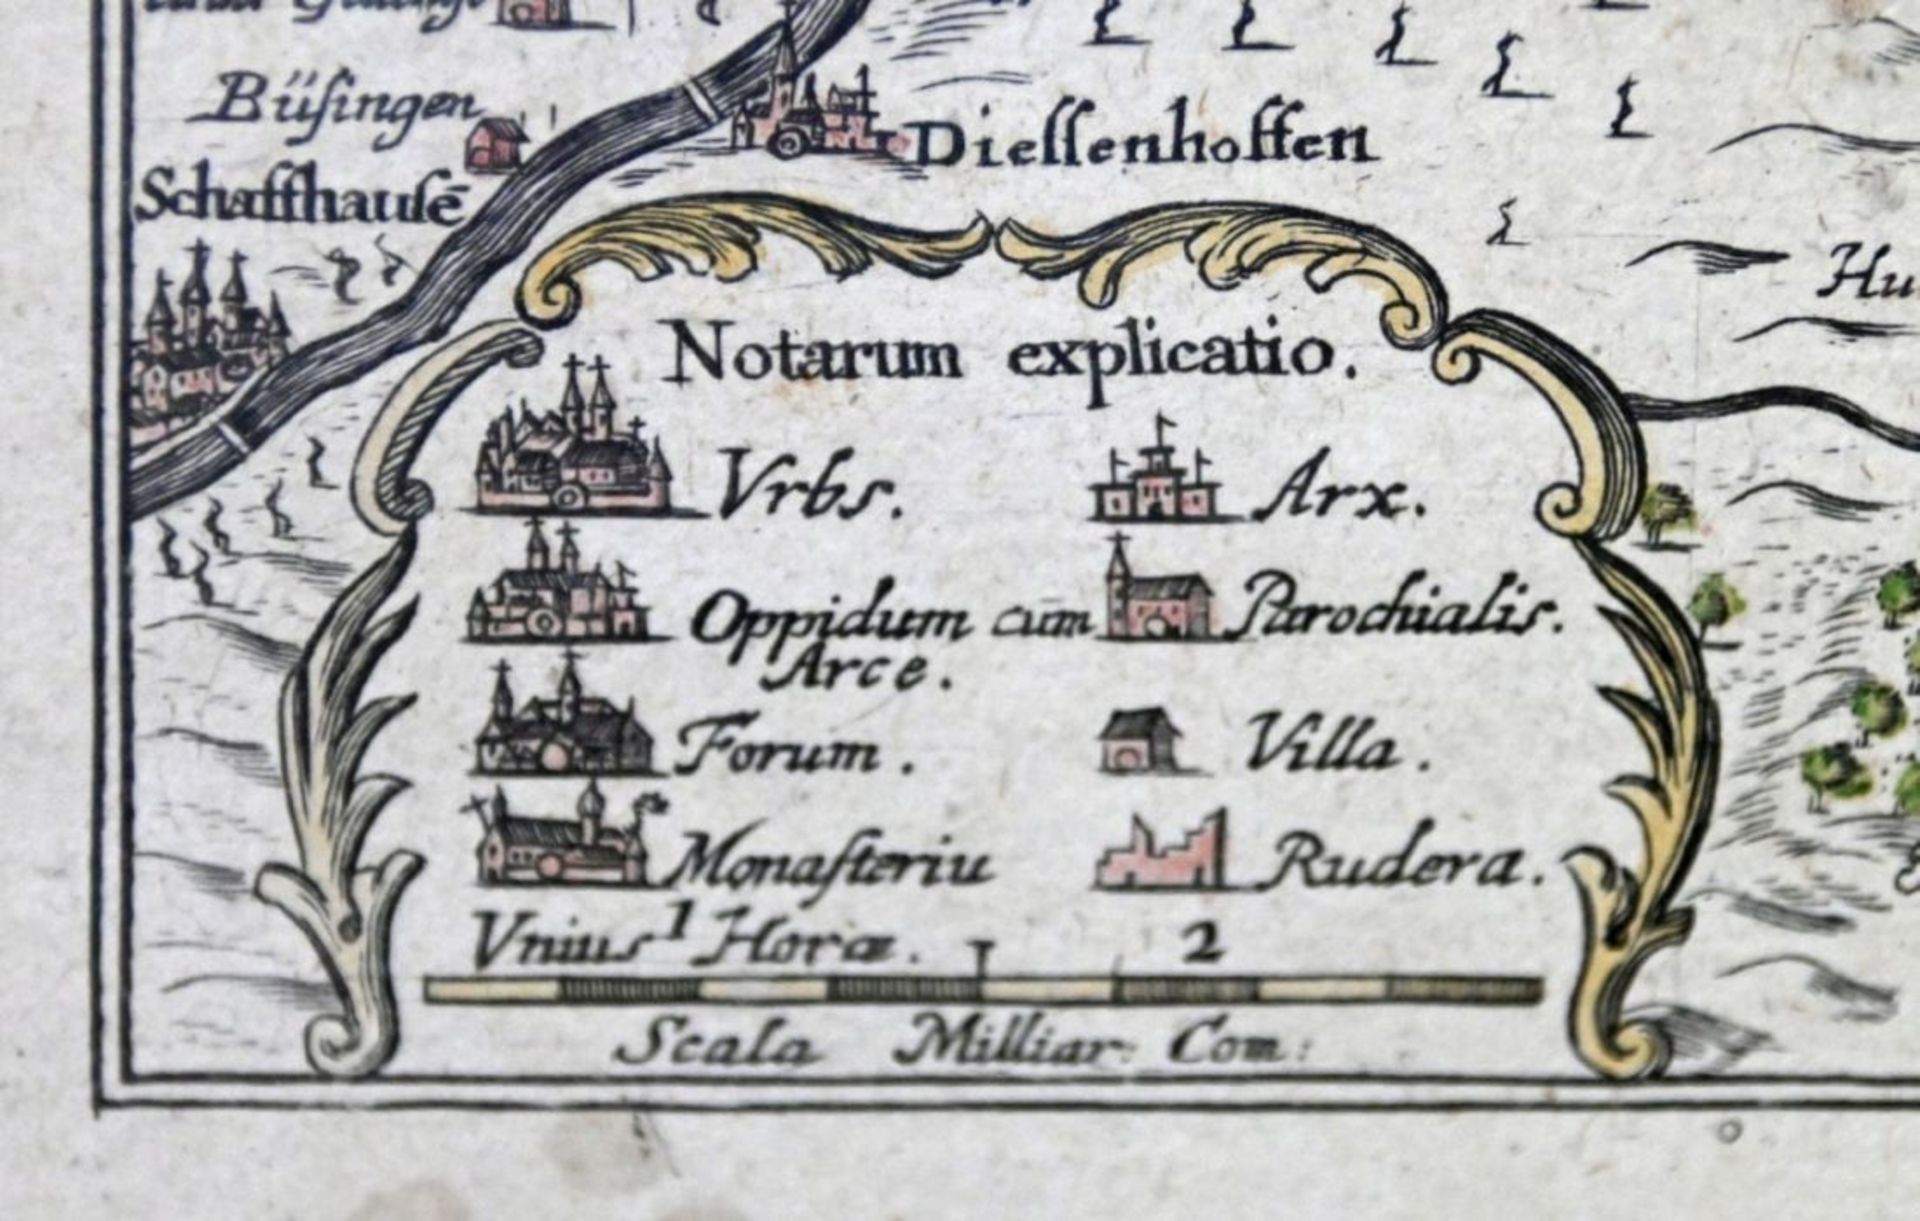 Büſingen
Schaffhauſē
Dieſſenhoffen
Hu
Notarum explicatio.
Vrbs.
Arx.
Oppidum cum
Arce.
Parochialis.
Forum.
Villa.
Monaſteriu
Rudera.
Vnius 1 Horæ.
2
Scala Milliar: Com: